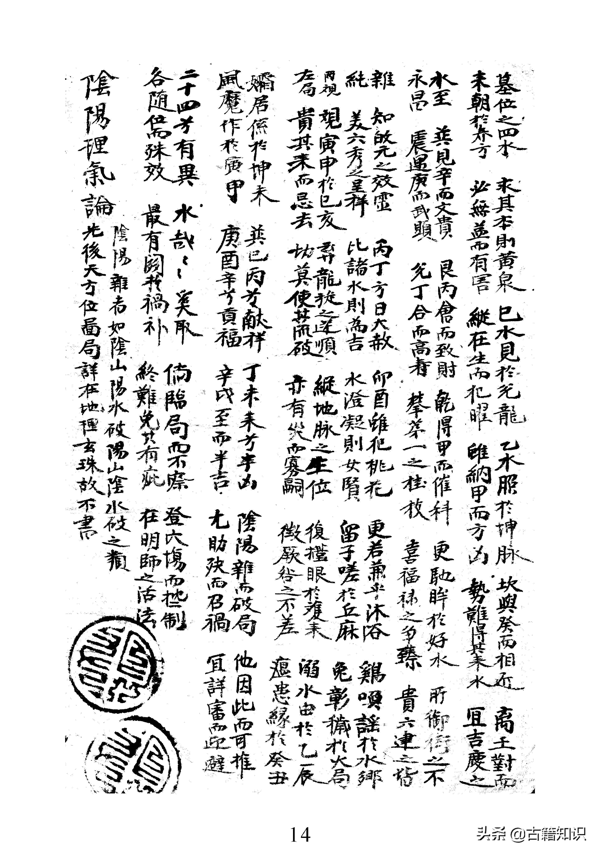 墓位之四水 求其本則黃泉 巳水見於元龍 乙水照於坤脉 坎與癸而相近 离壬對而
来朝於本方 必無益而有害 縱在生而犯曜 雖納甲而方凶 勢難得於来水 宜吉慶之
水至 巽見辛而文貴 艮丙會而致財 乾得甲而催科 更馳眸於好水 所御街之不
永昌 震遇庚而武顯 兌丁合而高壽 攀第一之桂枝 喜福禄之多臻 貴六連之皆
雜 知啟元之效靈 丙丁方曰大赦 卯酉雖犯桃花 更若兼乎沐浴 鷄唄謡於水鄉
純 美六秀之呈祥 比諸水則為吉 水澄凝則女賢 留子嗟於丘麻 免彰穢於大局
而視 寅甲於巳亥 尋龍旋之逆順 縱地脉之生位 復 眼於 来 溺水由於乙辰
左局 貴其来而忌去 切莫使其而破 亦有災而寡嗣 徵厥咎之不差 瘟患緣於癸丑
孀居係於坤未 巽巳丙芳献祥 丁未来芳半凶 陰陽雜而破局 他因此而可推
風魔作於寅甲 庚酉辛芳貢福 辛戌至而半吉 尤助殃而召禍 宜詳審而迎避
二十四芳有異 水哉々奚取 倘臨局而不療 登穴塲而控制
各随位而殊效 最有關於禍補 終難免於有疵 在明師之活法
陰陽理氣論 陰陽雜者如陰山陽水破陽山陰水破之類
先後天方位啚局詳在地理玄珠故不書
14
头条@古籍知识